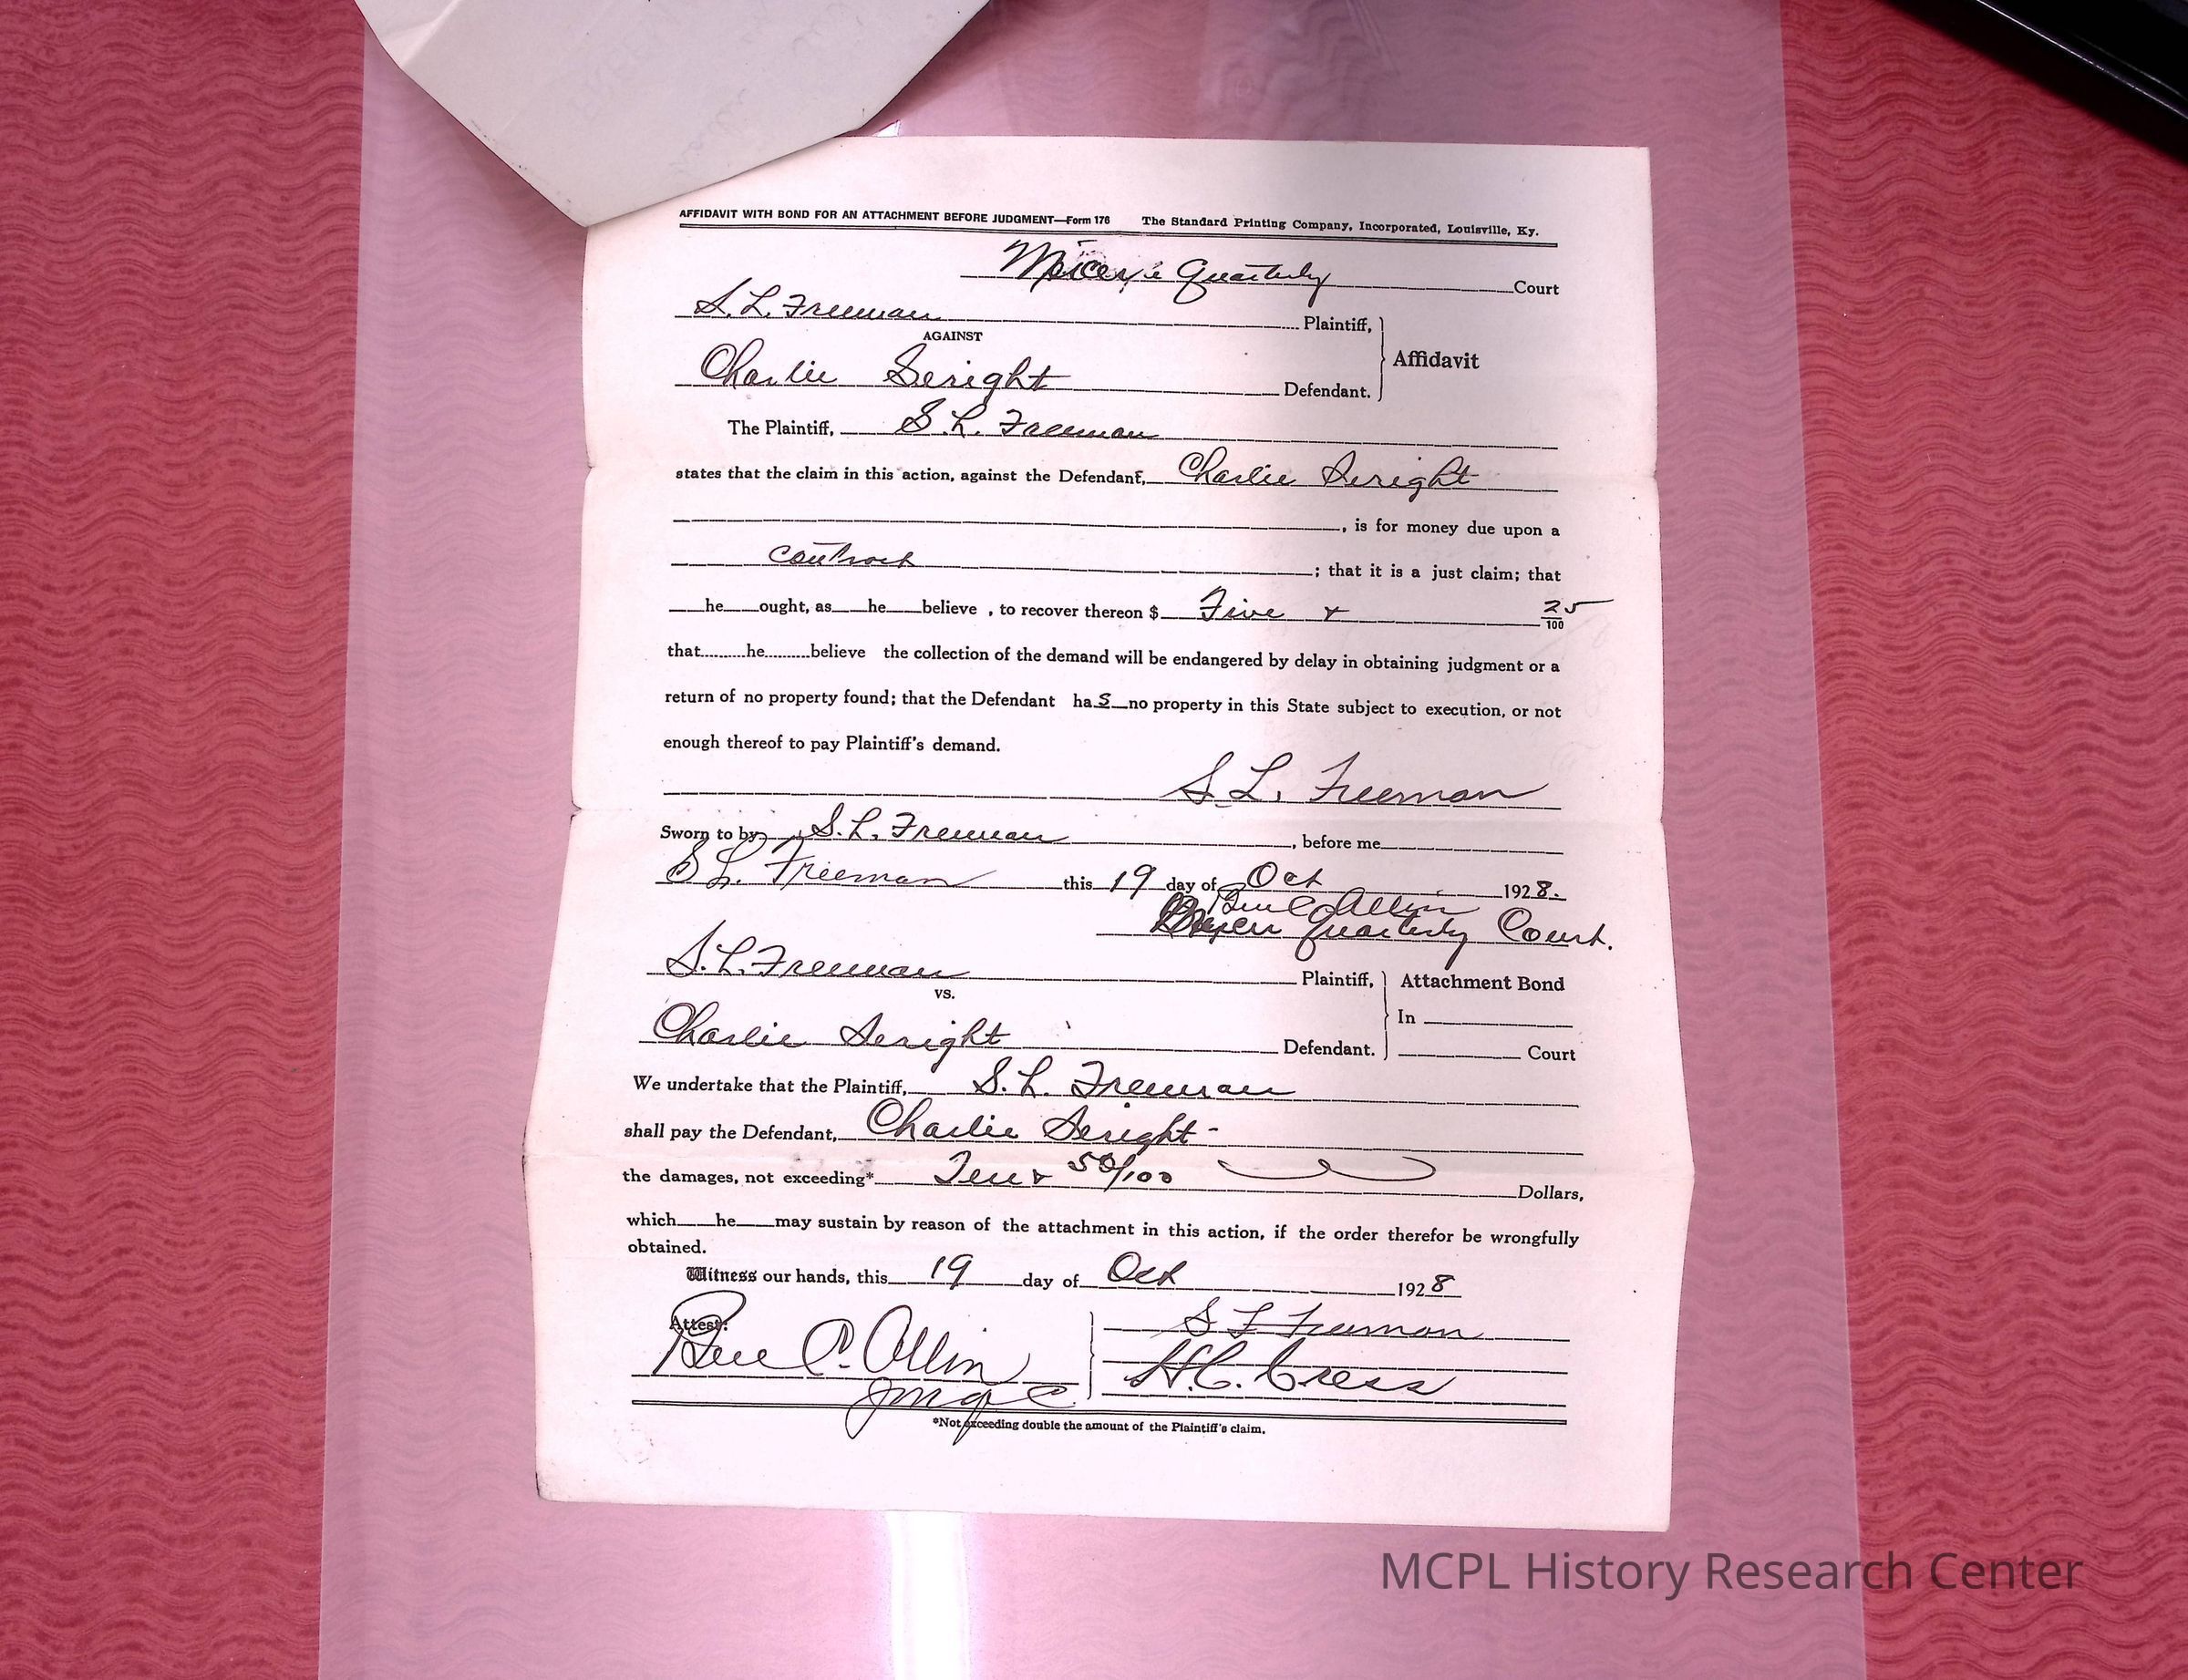 AFFIDAVIT WITH BOND FOR AN ATTACHMENT BEFORE JUDGMENT—Form 176 The Standard Printing Company, Incorporated, Louisville, Ky.
Mercer Quarterly Court
S. L. Freeman Plaintiff,
AGAINST
Affidavit
Charlie Seright Defendant.
The Plaintiff, S. L. Freeman
states that the claim in this action, against the Defendant, Charlie Seright
, is for money due upon a
contract ; that it is a just claim; that
he ought, as he believe , to recover thereon $ Five & 25/100
that he believe the collection of the demand will be endangered by delay in obtaining judgment or a
return of no property found; that the Defendant has no property in this State subject to execution, or not
enough thereof to pay Plaintiff's demand.
S. L. Freeman
Sworn to by S. L. Freeman , before me
S L. Freeman this 19 day of Oct 1928.
Ben C Allin
Quarterly Court.
S. L. Freeman Plaintiff,
Attachment Bond
vs.
In
Charlie Seright Defendant.
Court
We undertake that the Plaintiff, S. L. Freeman
shall pay the Defendant, Charlie Seright -
the damages, not exceeding* Ten & 50/100 Dollars,
which he may sustain by reason of the attachment in this action, if the order therefor be wrongfully
obtained.
Witness our hands, this 19 day of Oct 1928
Attest:
S L Freeman
Ben C. Allin
H. C. Cress
Judge
*Not exceeding double the amount of the Plaintiff's claim.
MCPL History Research Center